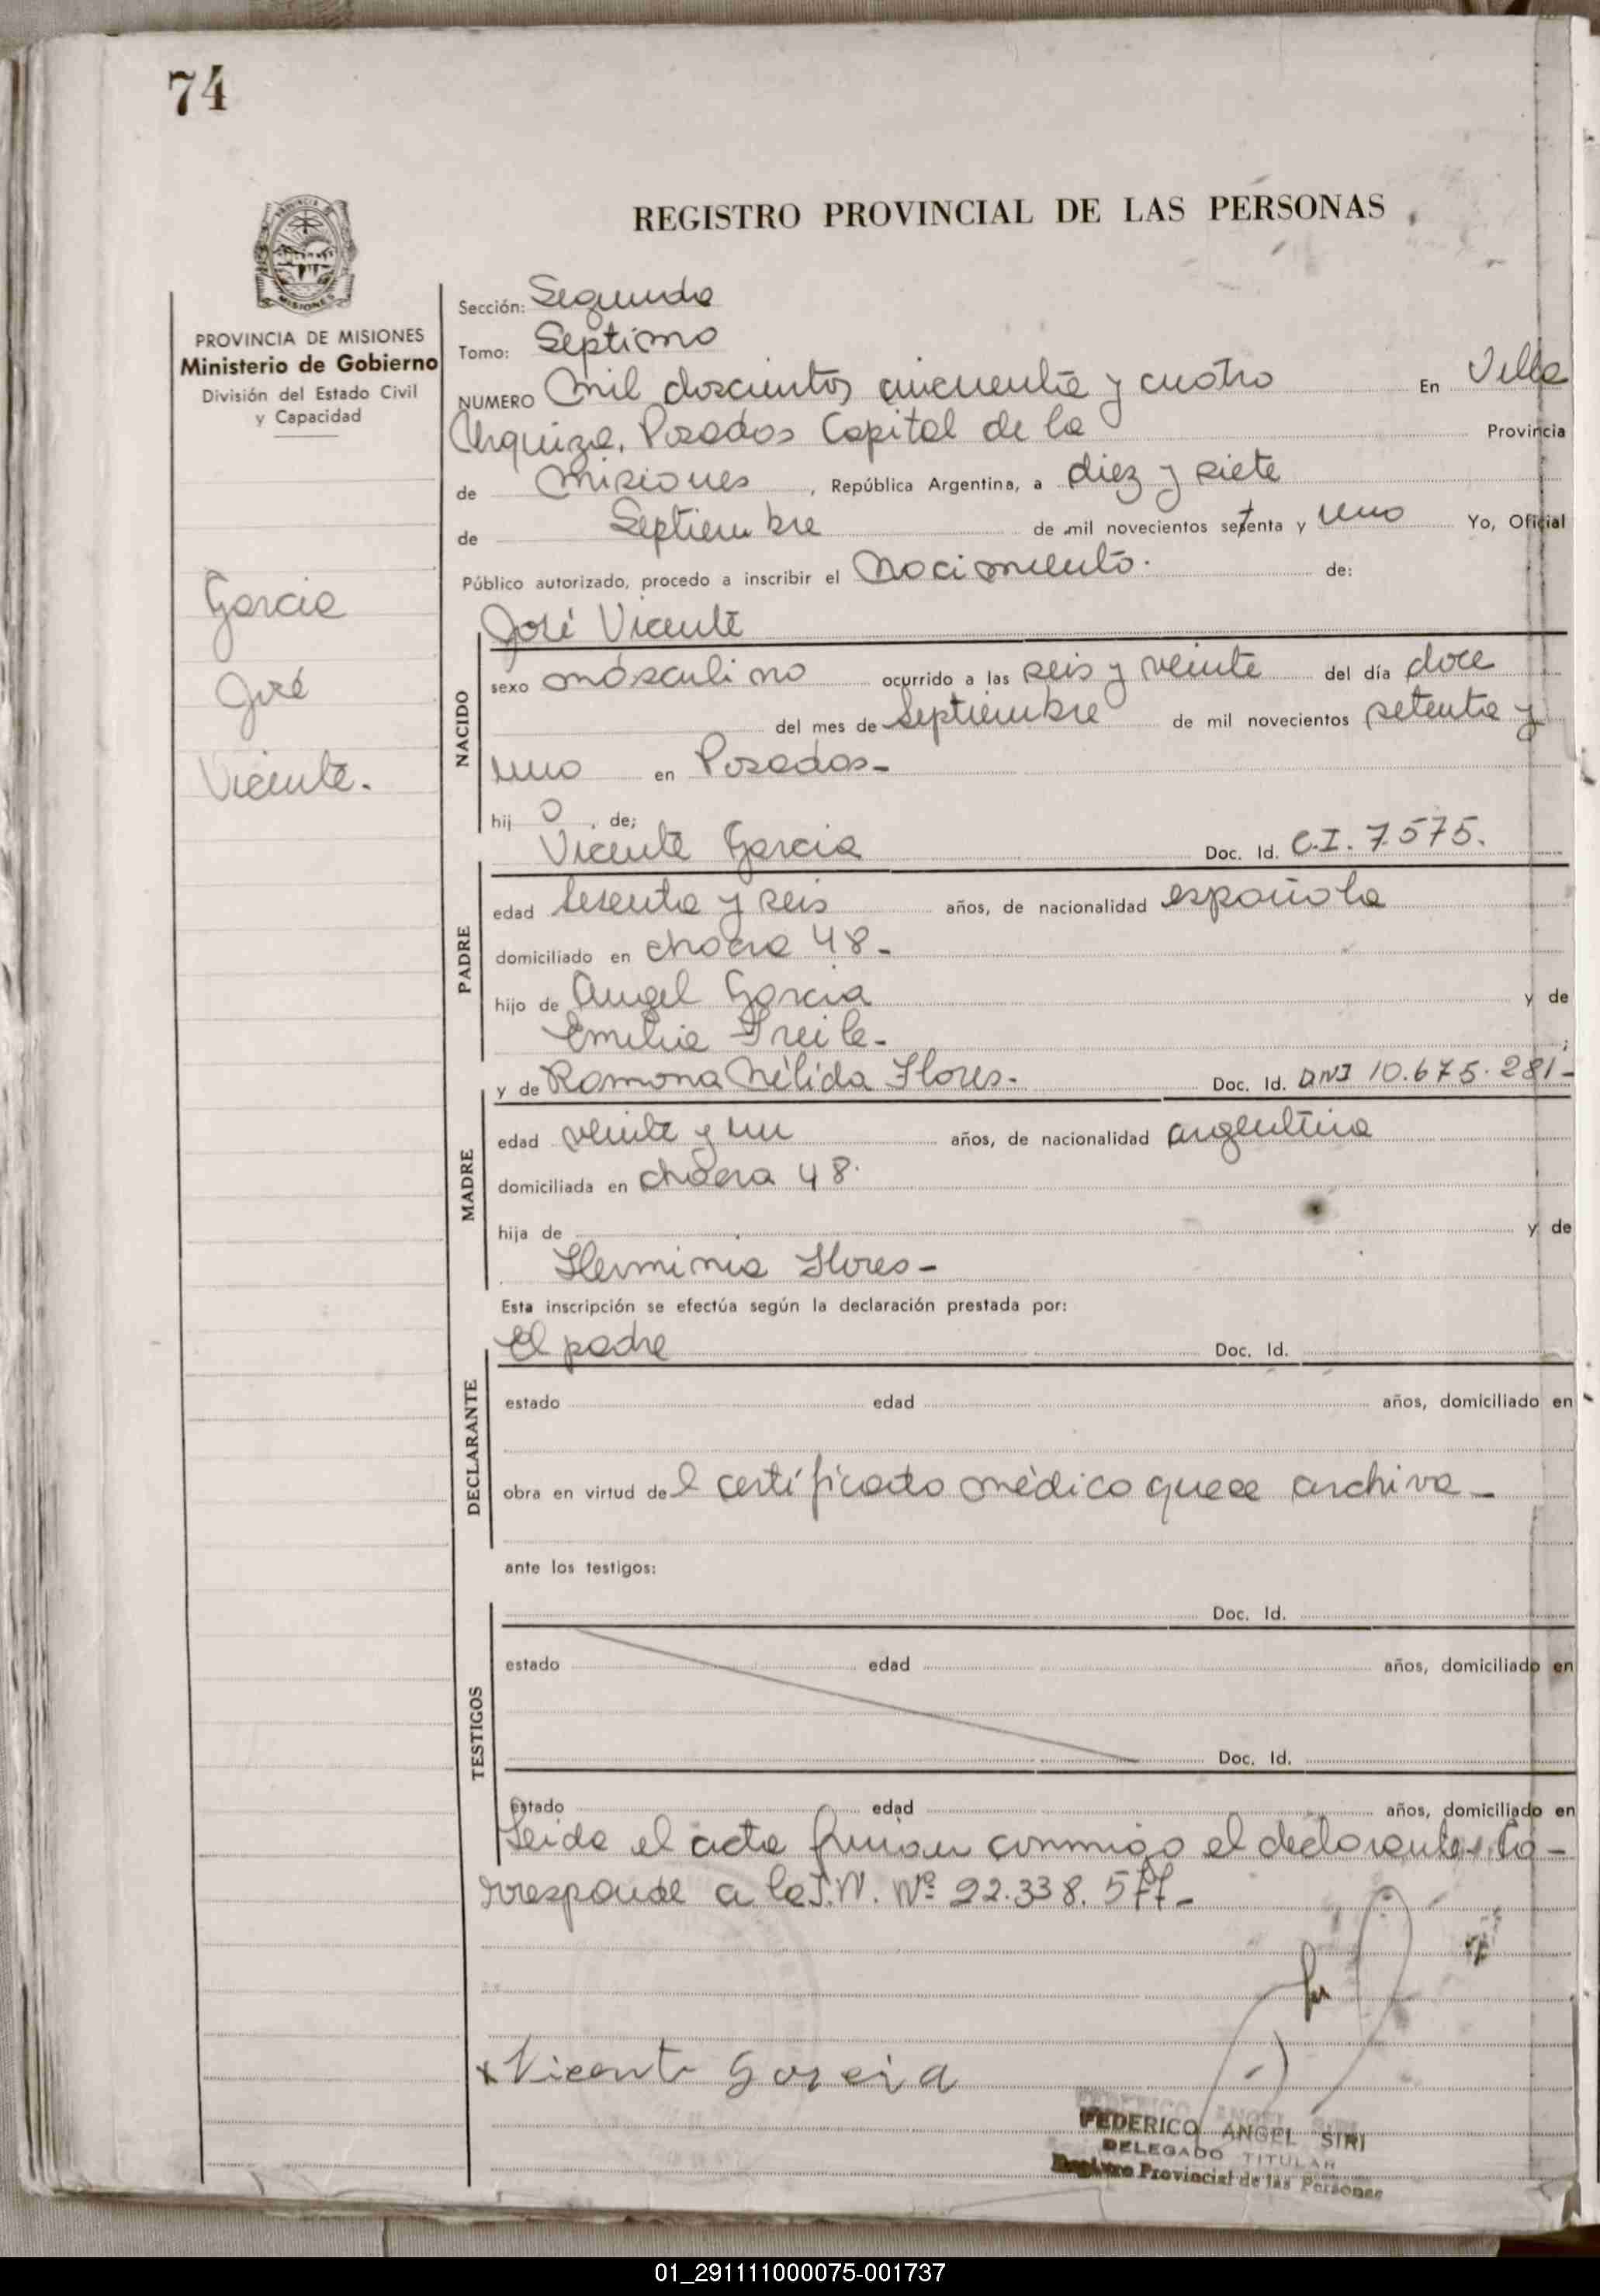 74
REGISTRO PROVINCIAL DE LAS PERSONAS
PROVINCIA DE MISIONES
MISIONES
PROVINCIA DE MISIONES
Ministerio de Gobierno
División del Estado Civil
y Capacidad
Garcia
José
Vicente.
Sección: Segunda
Tomo: Septimo
NUMERO Mil doscientos cincuenta y cuatro En Villa
Urquiza, Posadas Capital de la Provincia
de Misiones, República Argentina, a diez y siete
de Septiembre de mil novecientos setenta y uno Yo, Oficial
Público autorizado, procedo a inscribir el Nacimiento. de:
José Vicente
NACIDO
sexo másculino ocurrido a las seis y veinte del día doce
del mes de Septiembre de mil novecientos setenta y
uno en Posadas-
hij o, de;
Vicente Garcia Doc. Id. C.I. 7.575.
PADRE
edad sesenta y seis años, de nacionalidad española
domiciliado en chacra 48-
hijo de Angel Garcia y de
Emilia Freile- ;
y de Ramona Nélida Flores- Doc. Id. DNI 10.675.281-
MADRE
edad veinte y un años, de nacionalidad argentina
domiciliada en chacra 48.
hija de y de
Herminia Flores-
Esta inscripción se efectúa según la declaración prestada por:
El padre Doc. Id.
DECLARANTE
estado edad años, domiciliado en
obra en virtud de l certificado médico que se archiva-
ante los testigos:
Doc. Id.
TESTIGOS
estado edad años, domiciliado en
Doc. Id.
estado edad años, domiciliado en
Leida el acta firman conmigo el declarante. Co-
rresponde a la Nº 22.338.577-
x Vicente Garcia
FEDERICO ANGEL SIRI
DELEGADO TITULAR
Registro Provincial de las Personas
01_291111000075-001737